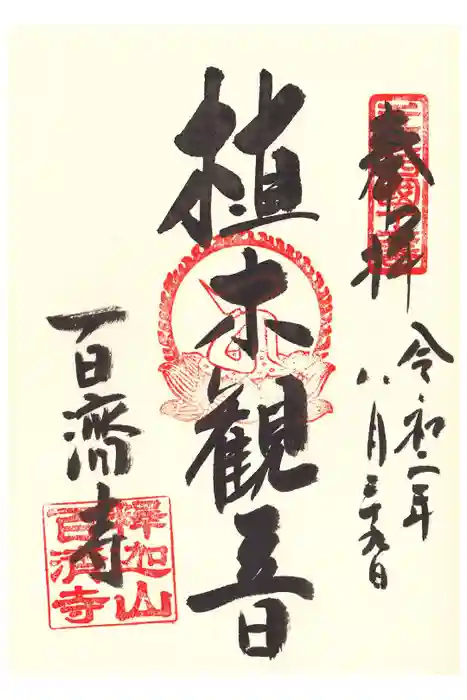 奉拝
令和二年
八月二十九日
植木観音
百濟寺
釋迦山
百濟寺